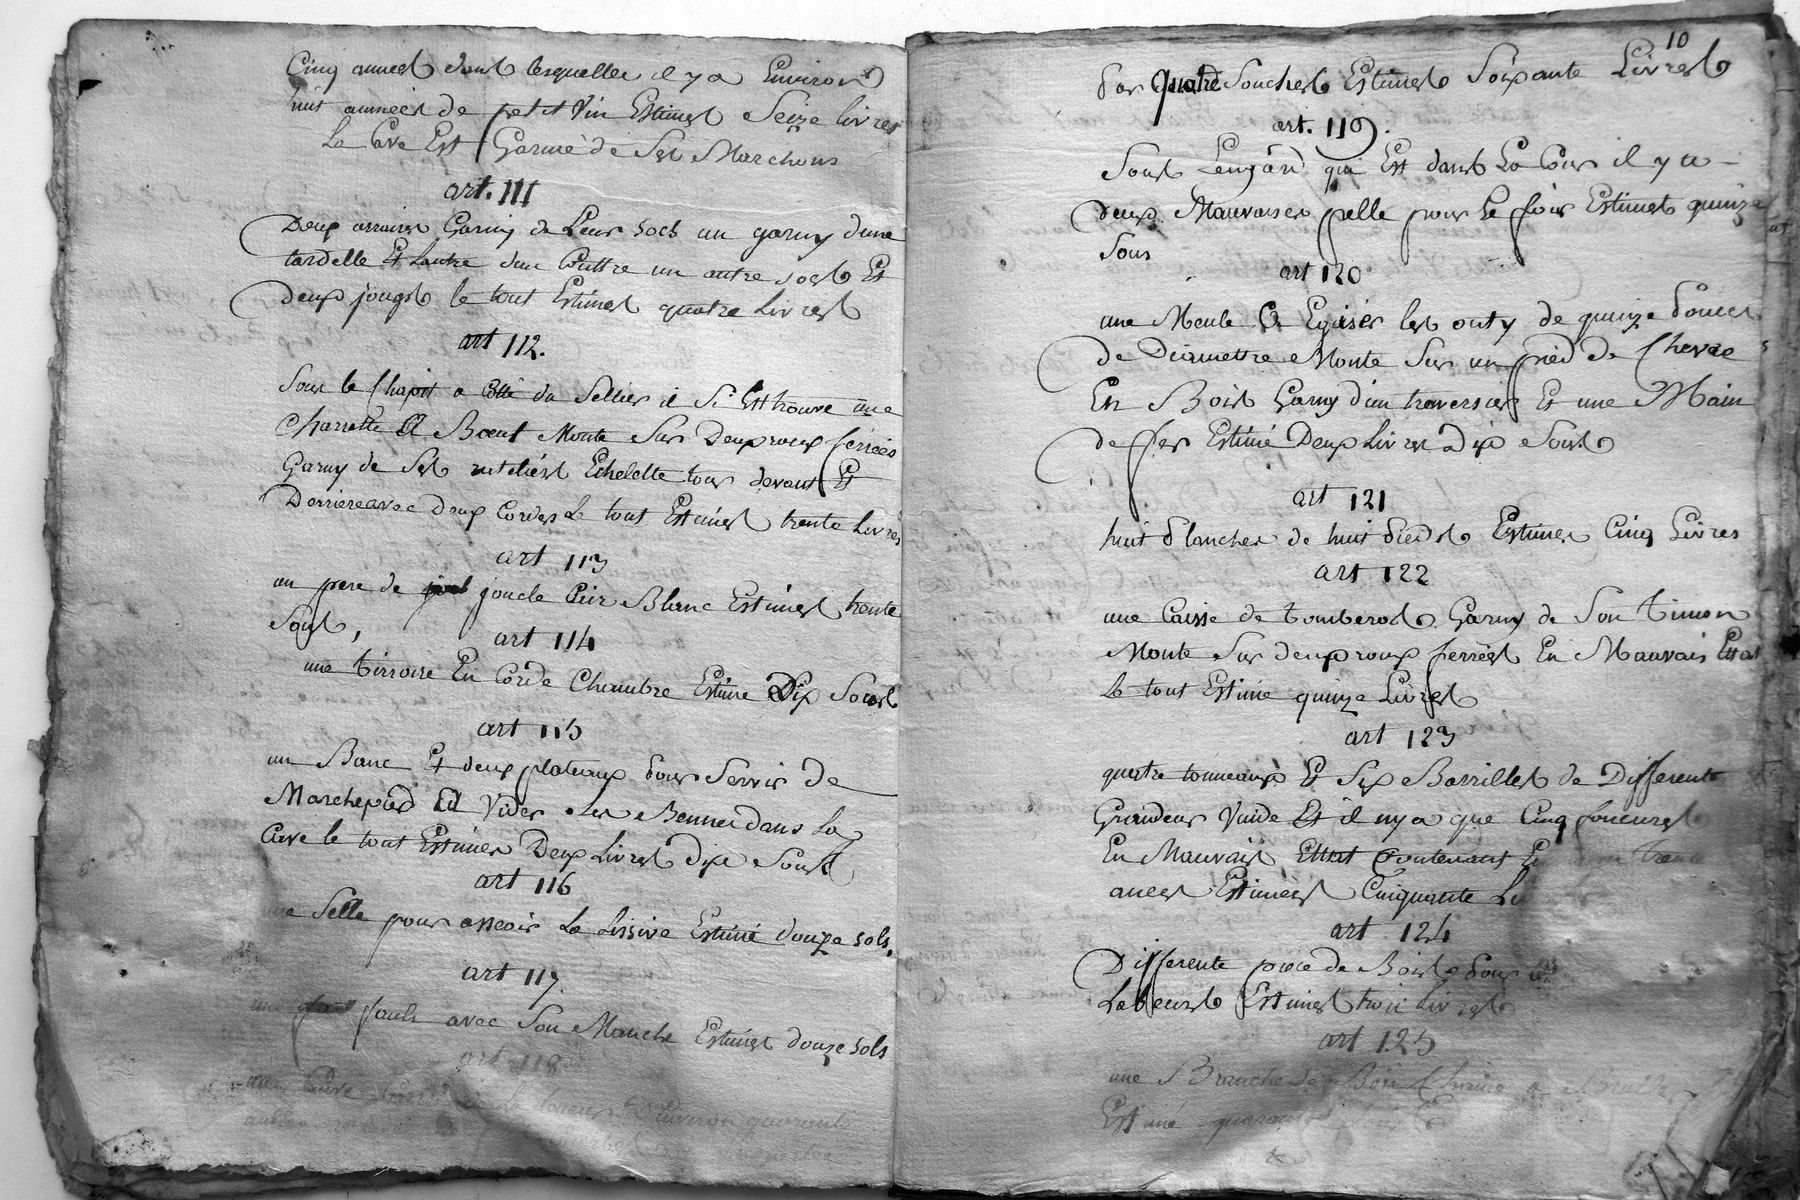 Cinq anneés dans lesquelles il y a Environ
huit anneés de petit Vin Estimés Seize livres
La Cave Est Garnie de Ses Marchons
art. 111
Deux arraires Garny de Leur socs un garny d'une
tardelle Et Lautre d'un Couttre un autre socs Et
deux jougs le tout Estimés quatre Livres
art 112.
Sous le Chapit a Cotté du Sellier il S'i Est trouvé une
Charrette A Bœuf Monte Sur Deux roux ferreés
Garny de Ses Echelette tour devant Et
Derriere avec deux Cordes Le tout Estimés trente Livres
art 113
un pere de joucle Cuir Blanc Estimés trente
Sous,
art 114
une tirroire En Corde Chambre Estimé Dix Sous
art 115
un Banc Et deux plateaux pour Servir de
Marchepied Et Vider Les Bennes dans La
Cuve le tout Estimés Deux Livres dix Sous
art 116
une Selle pour asseoir La Lissive Estimé douze sols.
art 117.
une faulx avec Son Manche Estimés douze sols
art 118
une Cuve Environ quarante
10
Par quatre Souches Estimés Soixante Livres
art. 119.
Sous L'engard qui Est dans La Cour il y a
deux Mauvaises pelle pour Le four Estimés quinze
Sous
art 120
une Meule A Eguiser les outy de quinze Pouces
de Diamettre Monte Sur un pied de Chevre
En Bois Garny d'un traversier Et une Main
de fer Estimé Deux Livres Dix Sous
art 121
huit Planches de huit Pieds Estimés Cinq Livres
art 122
une Caisse de tomberos Garny de Son timon
Monte Sur deux roux ferreés En Mauvais Etat
Le tout Estimé quinze Livres
art 123
quatre tonneaux Et Six Barrilles de Differente
Grandeur Vuide Et il n'y a que Cinq
En Mauvais Ettat Contenant trente
aneés Estimeés Cinquante Li
art 124
Differente piece de Bois Pour
Labeurs Estimés trois Livres
art 125
une Branche de Bois a Bruller
Estimé quarante